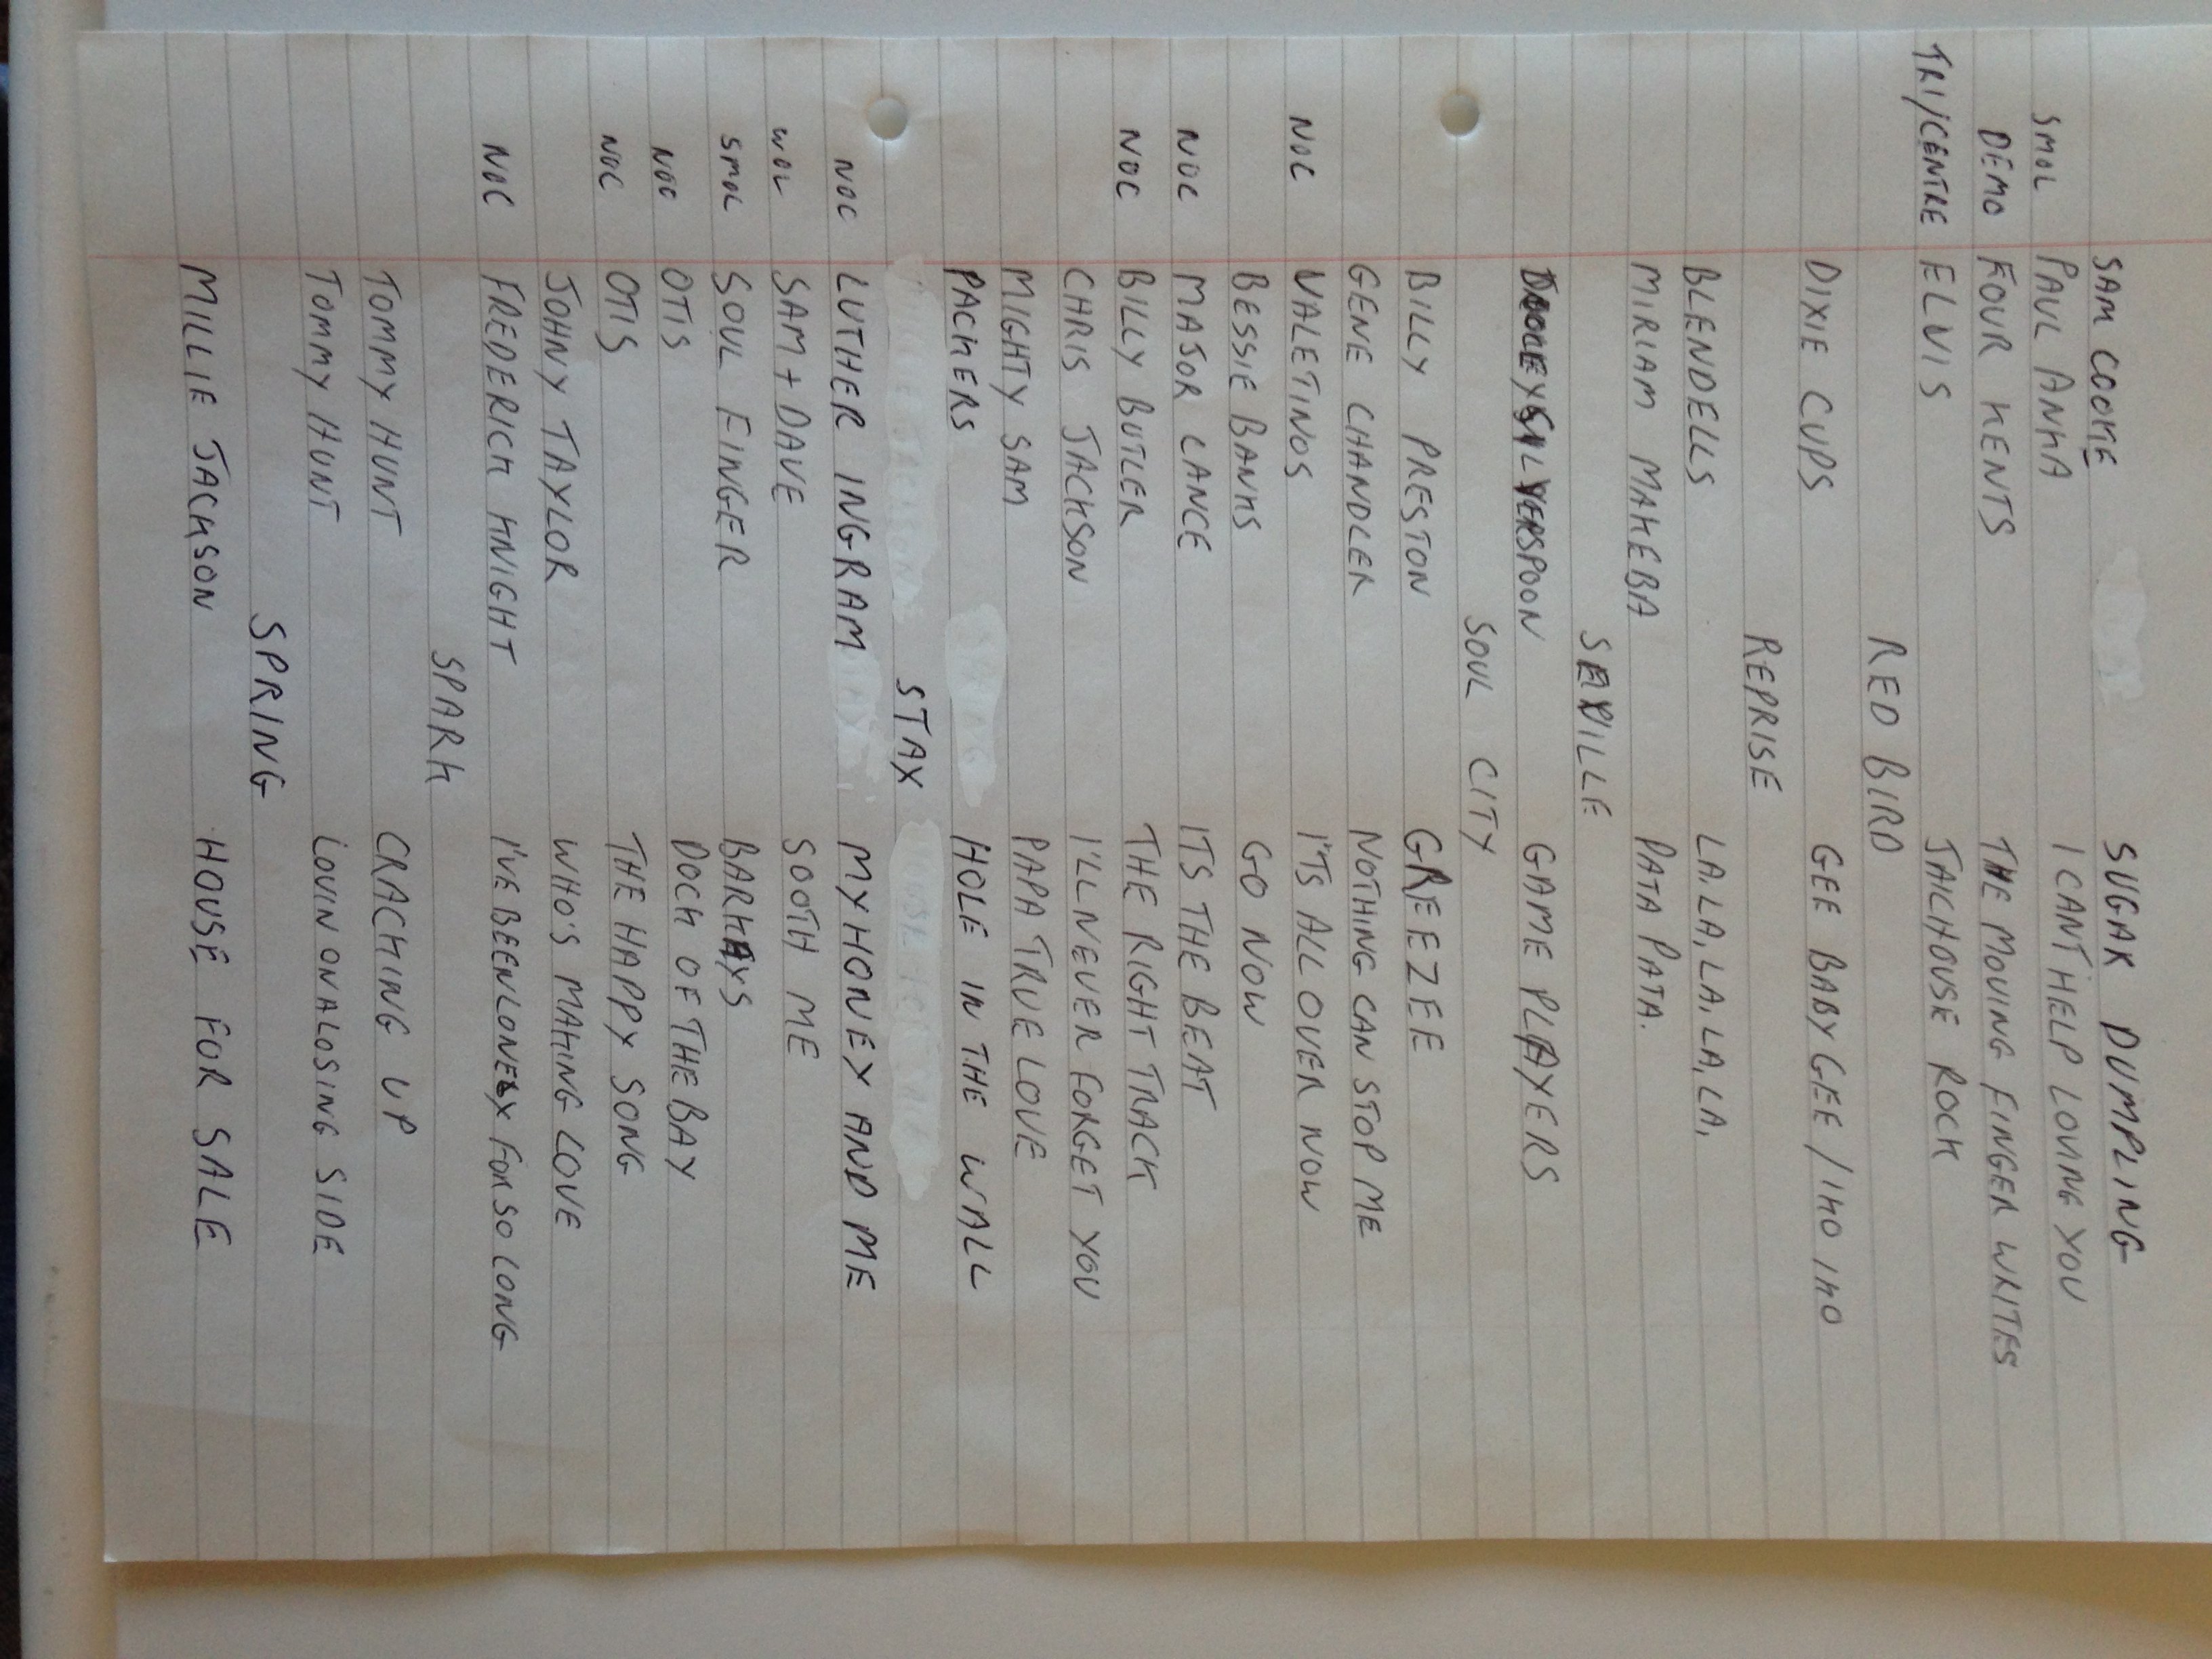 SAM COOKE SUGAR DUMPLING
SMOL PAUL ANKA I CANT HELP LOVING YOU
DEMO FOUR KENTS THE MOVING FINGER WRITES
TRI/CENTRE ELVIS JAILHOUSE ROCK
RED BIRD
DIXIE CUPS GEE BABY GEE / IKO IKO
REPRISE
BLENDELLS LA, LA, LA, LA, LA,
MIRIAM MAKEBA PATA PATA.
SEVILLE
DOOLEY SILVERSPOON GAME PLAYERS
SOUL CITY
BILLY PRESTON GREEZEE
GENE CHANDLER NOTHING CAN STOP ME
NOC VALETINOS I'TS ALL OVER NOW
BESSIE BANKS GO NOW
NOC MAJOR LANCE ITS THE BEAT
NOC BILLY BUTLER THE RIGHT TRACK
CHRIS JACKSON I'LL NEVER FORGET YOU
MIGHTY SAM PAPA TRUE LOVE
PACKERS HOLE IN THE WALL
STAX
NOC LUTHER INGRAM MY HONEY AND ME
WOL SAM + DAVE SOOTH ME
SMOL SOUL FINGER BARKAYS
NOC OTIS DOCK OF THE BAY
NOC OTIS THE HAPPY SONG
JOHNY TAYLOR WHO'S MAKING LOVE
NOC FREDERICK KNIGHT I'VE BEEN LONELY FOR SO LONG
SPARK
TOMMY HUNT CRACKING UP
TOMMY HUNT LOVIN ON A LOSING SIDE
SPRING
MILLIE JACKSON HOUSE FOR SALE